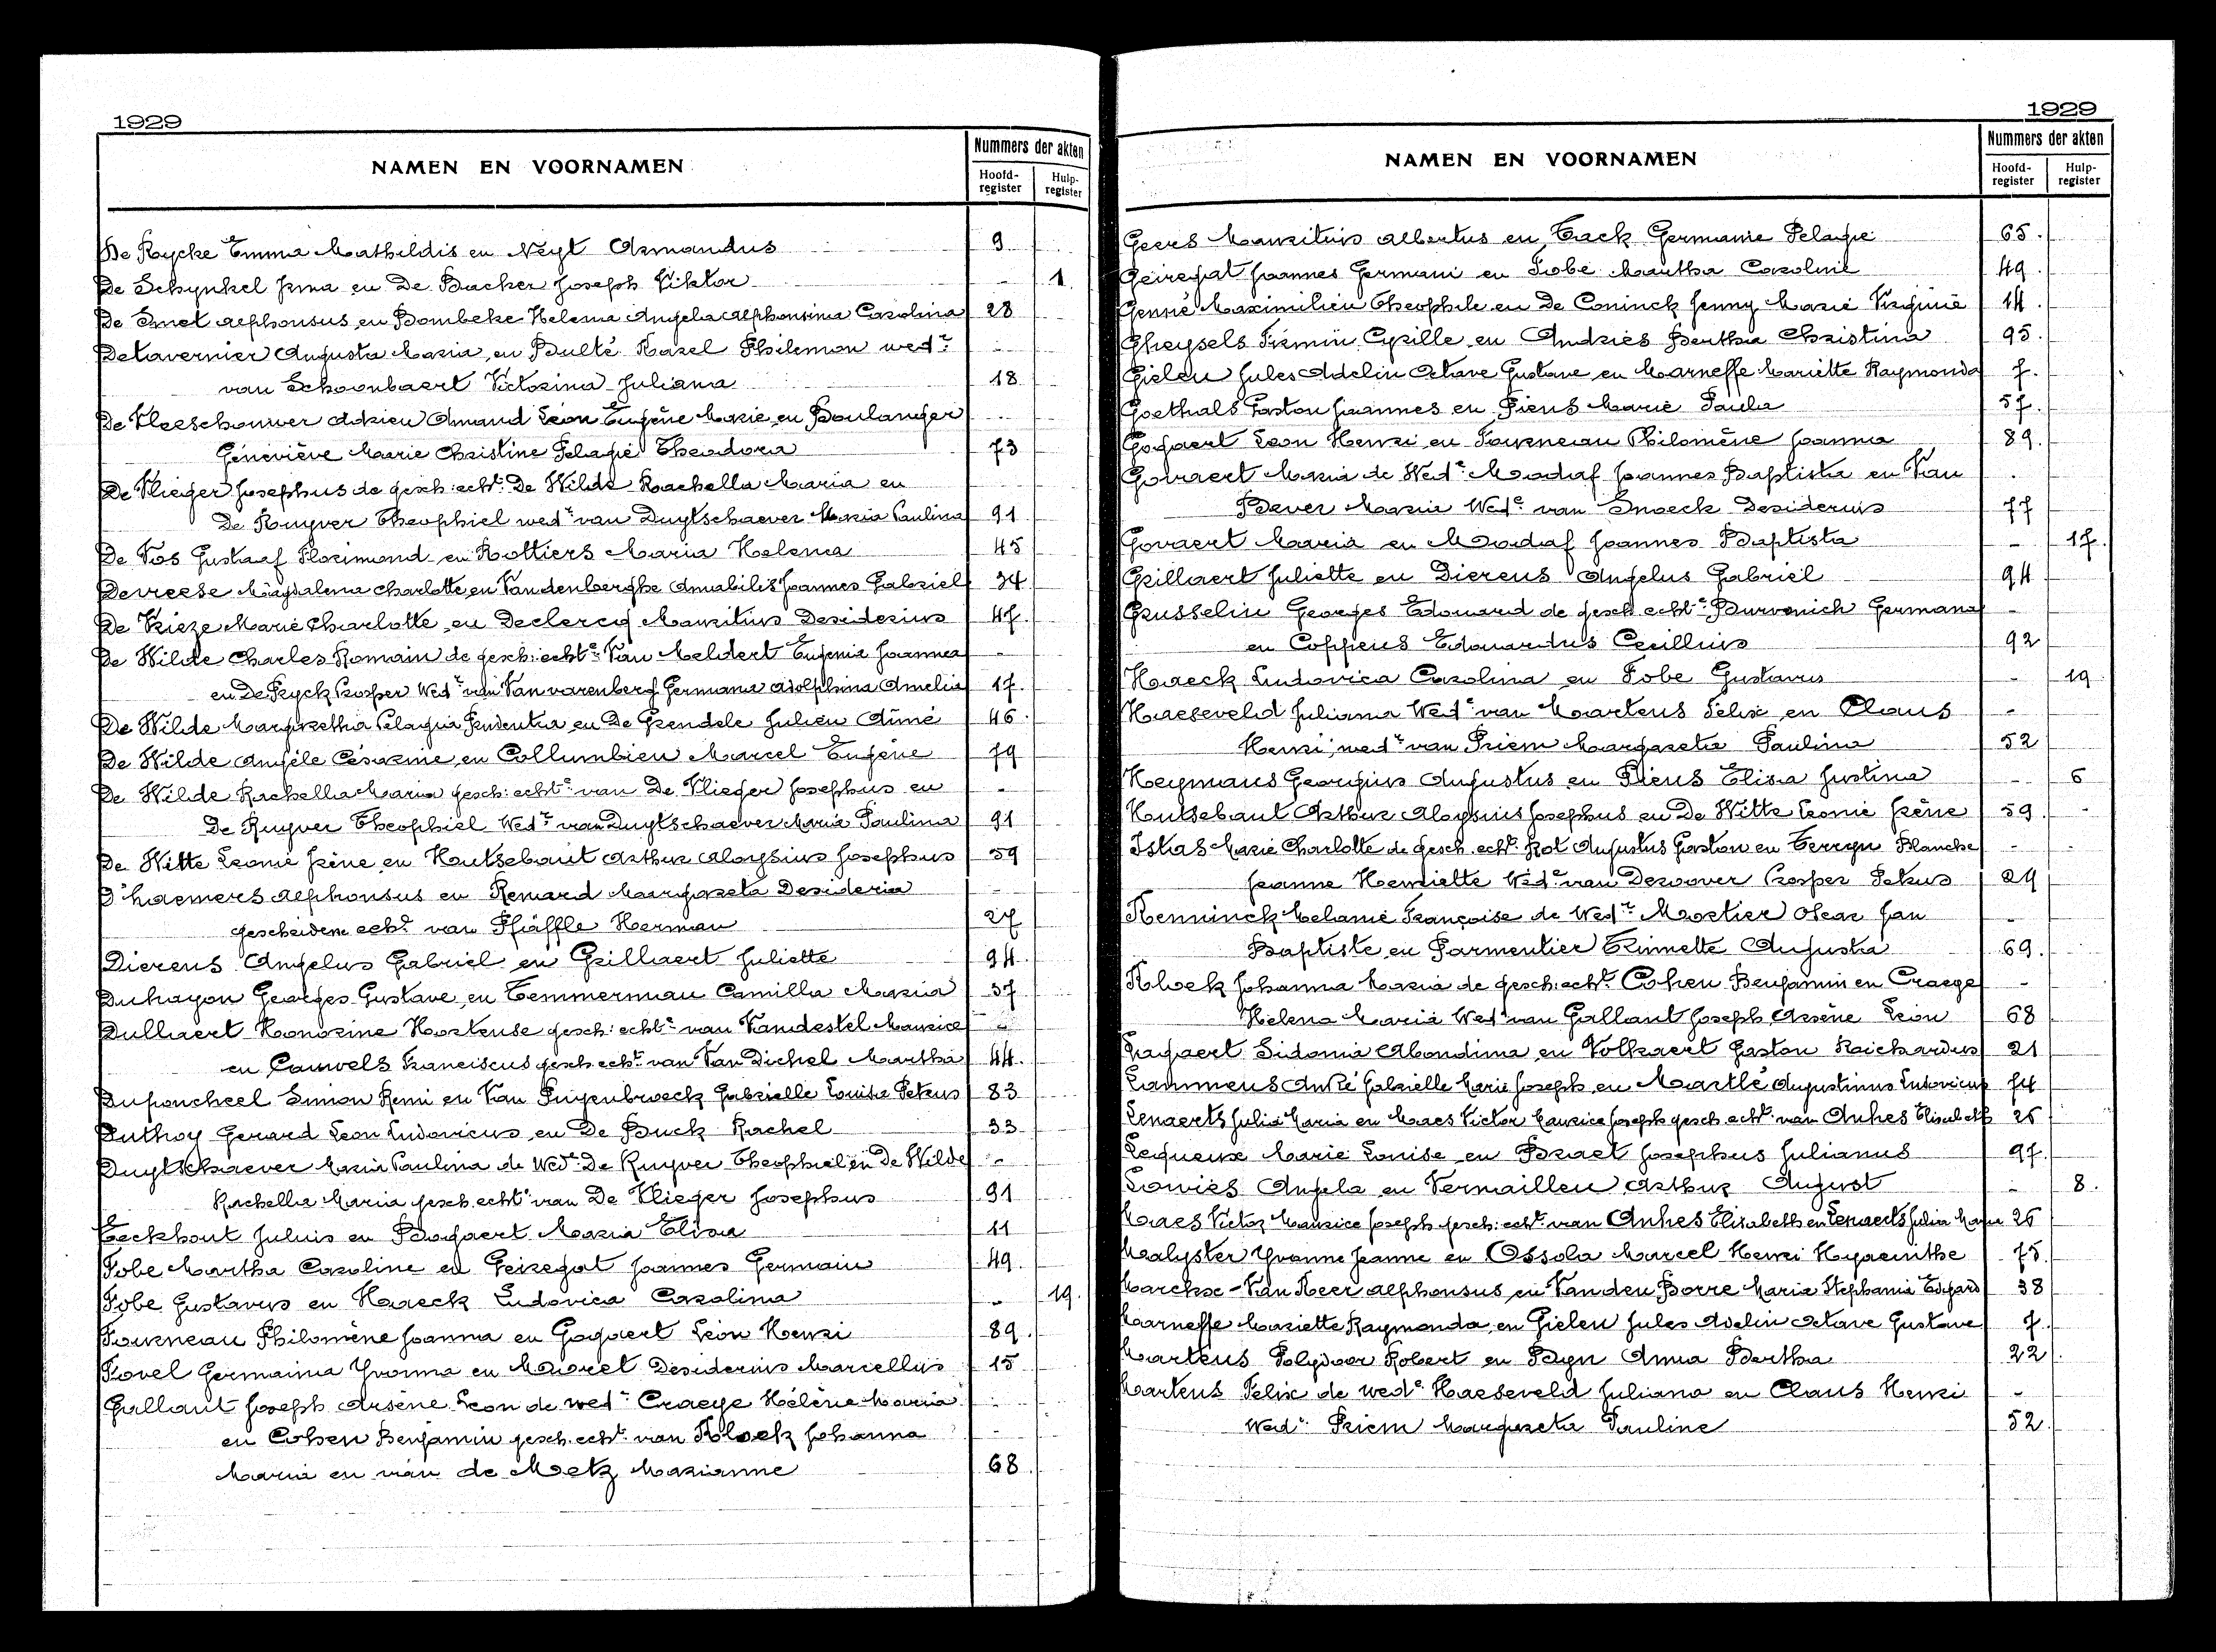 1929
NAMEN EN VOORNAMEN
Nummers der akten
Hoofd-register
Hulp-register
De Rycke Emma Mathildis en Neyt Armandus 9
De Schynkel Irma en De Backer Joseph Viktor - 1
De Smet Alphonsus en Bombeke Helena Angela Alphonsina Carolina 28
Detavernier Augusta Maria en Bulté Karel Philemon wedr -
van Schoonbaert Victorina Juliana 18
De Vleeschouwer Adrien Amand Léon Eugène Marie en Boulanger -
Géneviève Marie Christine Pelagie Theodora 73
De Vlieger Josephus de gesch: echt: De Wilde Rachella Maria en
De Ruyver Theophiel wedr van Duytschaever Maria Paulina 91
De Vos Gustaaf Florimond en Rottiers Maria Helena 45
Devreese Magdalena Charlotte en Vandenberghe Amabilis Joannes Gabriel 34
De Vrieze Marie Charlotte en Declercq Mauritius Desiderius 47.
De Wilde Charles Romain de gesch: echte Van Meldert Eugenia Joanna -
en De Ryck Prosper Wedr van Van varenberg Germana Adolphina Amelia 17
De Wilde Margaretha Pelagia Prudentia en De Grendele Julien Aimé 46.
De Wilde Angèle Césarine en Collumbien Marcel Eugène 79
De Wilde Rachella Maria gesch: echte van De Vlieger Josephus en -
De Ruyver Theophiel Wedr van Duytschaever Maria Paulina 91
De Witte Leonie Irène en Houtsebaut Arthur Aloysius Josephus 59
D'haemers Alphonsus en Renard Margareta Desideria -
gescheidene echt: van Pfäffle Herman 27
Dierens Angelus Gabriel en Grillaert Juliette 94.
Duhayon Georges Gustave en Temmerman Camilla Maria 37
Dullaert Honorine Hortense gesch: echte van Vandestel Maurice -
en Cauwels Franciscus gesch. echt. van Van Dichel Martha 44.
Duponcheel Simon Remi en Van Puyenbroeck Gabrielle Louisa Petrus 83
Duthoy Gerard Leon Ludovicus en De Buck Rachel 33
Duytschaever Maria Paulina de Wede De Ruyver Theophiel en De Wilde -
Rachella Maria gesch. echte van De Vlieger Josephus 91
Eeckhout Julius en Bogaert Maria Elisa 11
Fobe Martha Caroline en Geiregat Joannes Germain 49.
Fobe Gustavus en Haeck Ludovica Carolina - 19.
Fourneau Philomène Joanna en Gogaert Léon Henri 89.
Fovel Germaina Yvonna en Moreel Desiderius Marcellus 15
Gallant Joseph Arsène Leon de wede Craeye Hélène Maria -
en Cohen Benjamin gesch. echt. van Kloek Johanna -
Maria en van de Metz Marianne 68
1929
NAMEN EN VOORNAMEN
Nummers der akten
Hoofd-register
Hulp-register
Geers Mauritius Albertus en Tack Germanie Pelagie 65.
Geiregat Joannes Germain en Fobe Martha Caroline 49.
Genné Maximilien Theophile en De Coninck Jenny Marie Virginie 14.
Gheysels Firmin Cyrille en Andries Bertha Christina 95.
Gielen Jules Adelin Octave Gustave en Marneffe Mariette Raymonda 7.
Goethals Gaston Joannes en Piens Marie Paula 57.
Gogaert Leon Henri en Fourneau Philomène Joanna 89.
Govaert Maria de Wede Modaf Joannes Baptista en Van
Bever Maria Wede van Snoeck Desiderius 77
Govaert Maria en Modaf Joannes Baptista - 17.
Grillaert Juliette en Dierens Angelus Gabriël 94
Grusselin Georges Edouard de gesch. echte Burvenich Germana -
en Coppens Edouardus Cecillius 92
Haeck Ludovica Carolina en Fobe Gustavus - 19
Haeseveld Juliana Wede van Martens Felix en Claus -
Henri, wedr van Priem Margareta Paulina 52
Heymans Georgius Augustus en Piens Elisa Justina - 6
Houtsebaut Arthur Aloysius Josephus en De Witte Leonie Irène 59. -
Istas Marie Charlotte de gesch. echt. Rot Augustus Gaston en Terryn Blanche - -
Jeanne Henriette Wede van Deroover Prosper Petrus 29
Kenninck Melanie Françoise de Wede Mortier Oscar Jan -
Baptiste en Parmentier Erinette Augusta 69.
Kloek Johanna Maria de gesch: echt. Cohen Benjamin en Craeye -
Helena Maria Wede van Gallant Joseph Arsène Leon 68
Lagaert Sidonia Abondina en Volkaert Gaston Reichardus 21
Lammens André Gabrielle Marie Joseph en Martlé Augustinus Ludovicus 74
Lenaerts Julia Maria en Maes Victor Maurice Joseph gesch. echt. van Anhes Elisabeth 26
Lequeux Marie Louise en Braet Josephus Julianus 97.
Lowies Angela en Vermaillen Arthur August - 8.
Maes Victor Maurice Joseph gesch: echt. van Anhes Elisabeth en Lenaerts Julia Maria 26
Malyster Yvonne Jeanne en Ossola Marcel Henri Hyacinthe 75.
Marckx-Van Reer Alphonsus en Vanden Borre Maria Stephania Edgard 38
Marneffe Mariette Raymonda en Gielen Jules Adelin Octave Gustave 7.
Martens Polydoor Robert en Byn Anna Bertha 22
Martens Felix de wede Haeseveld Juliana en Claus Henri -
Wedr Priem Margareta Pauline 52.